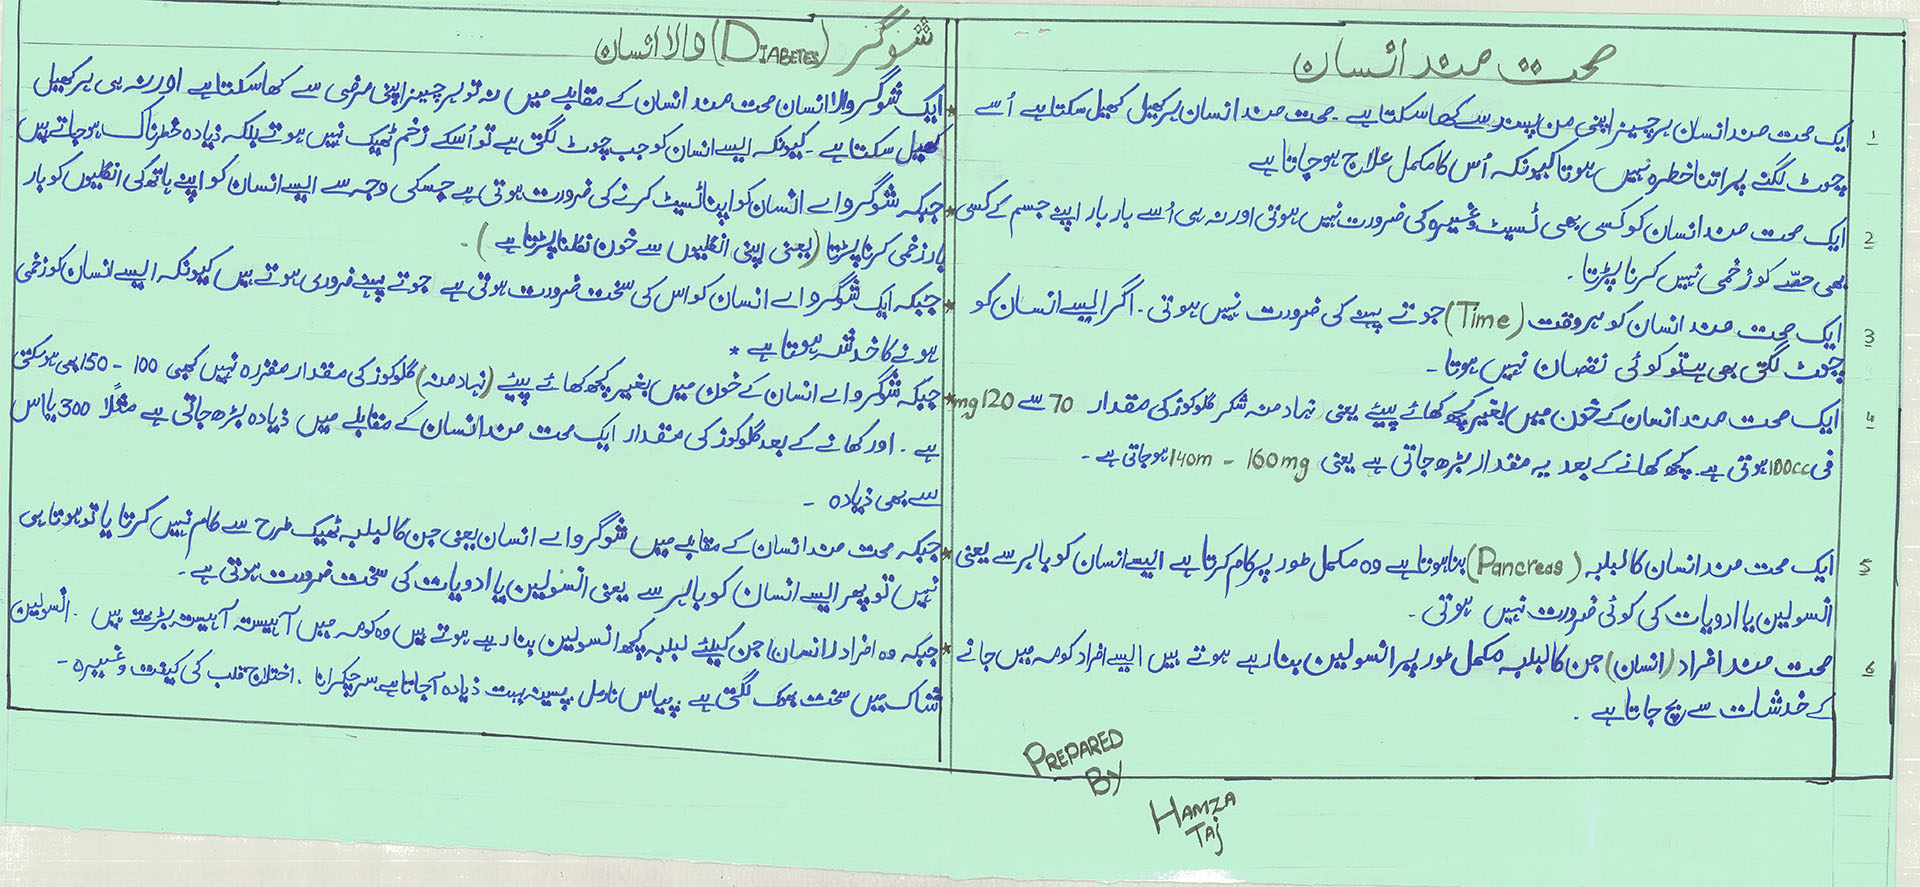 صحت مند انسان
1 ایک صحت مند انسان ہر چیز اپنی من پسند سے کھا سکتا ہے۔ صحت مند انسان ہر کھیل کھیل سکتا ہے اُسے
چوٹ لگنے پر اتنا خطرہ نہیں ہوتا کیونکہ اُس کا مکمل علاج ہو جاتا ہے
2 ایک صحت مند انسان کو کسی بھی ٹسیٹ وغیرہ کی ضرورت نہیں ہوتی اور نہ ہی اُسے بار بار اپنے جسم کے کسی
بھی حصّے کو زخمی نہیں کرنا پڑتا۔
3 ایک صحت مند انسان کو ہر وقت (Time) جوتے پہنے کی ضرورت نہیں ہوتی۔ اگر ایسے انسان کو
چوٹ لگتی بھی ہے تو کوئی نقصان نہیں ہوتا۔
4 ایک صحت مند انسان کے خون میں بغیر کچھ کھائے پیئے یعنی نہار منہ شکر گلوکوز کی مقدار 70 سے 120 mg
فی 100cc ہوتی ہے۔ کچھ کھانے کے بعد یہ مقدار بڑھ جاتی ہے یعنی 140m - 160mg ہو جاتی ہے۔
5 ایک صحت مند انسان کا لبلبہ (Pancreas) بنا ہوتا ہے وہ مکمل طور پر کام کرتا ہے ایسے انسان کو باہر سے یعنی
انسولین یا ادویات کی کوئی ضرورت نہیں ہوتی۔
6 صحت مند افراد (انسان) جن کا لبلبہ مکمل طور پر انسولین بنا رہے ہوتے ہیں ایسے افراد کومہ میں جانے
کے خدشات سے بچ جاتا ہے۔
شوگر (DIABETES) والا انسان
* ایک شوگر والا انسان صحت مند انسان کے مقابلے میں نہ تو ہر چیز اپنی مرضی سے کھا سکتا ہے اور نہ ہی ہر کھیل
کھیل سکتا ہے۔ کیونکہ ایسے انسان کو جب چوٹ لگتی ہے تو اُسکے زخم ٹھیک نہیں ہوتے بلکہ زیادہ خطرناک ہو جاتے ہیں
* جبکہ شوگر والے انسان کو اپنا ٹسیٹ کرنے کی ضرورت ہوتی ہے جسکی وجہ سے ایسے انسان کو اپنے ہاتھ کی انگلیوں کو بار
بار زخمی کرنا پڑتا (یعنی اپنی انگلیوں سے خون نکلنا پڑتا ہے)۔
* جبکہ ایک شوگر والے انسان کو اس کی سخت ضرورت ہوتی ہے جوتے پہنے ضروری ہوتے ہیں کیونکہ ایسے انسان کو زخمی
ہونے کا خدشہ ہوتا ہے *
* جبکہ شوگر والے انسان کے خون میں بغیر کچھ کھائے پیئے (نہار منہ) گلوکوز کی مقدار مقررہ نہیں کبھی 100 - 150 بھی ہو سکتی
ہے۔ اور کھانے کے بعد گلوکوز کی مقدار ایک صحت مند انسان کے مقابلے میں زیادہ بڑھ جاتی ہے مثلاً 300 یا اس
سے بھی زیادہ۔
* جبکہ صحت مند انسان کے مقابلے میں شوگر والے انسان یعنی جن کا لبلبہ ٹھیک طرح سے کام نہیں کرتا یا تو ہوتا ہی
نہیں تو پھر ایسے انسان کو باہر سے یعنی انسولین یا ادویات کی سخت ضرورت ہوتی ہے۔
* جبکہ وہ افراد (انسان) جن کیلئے لبلبہ کچھ انسولین بنا رہے ہوتے ہیں وہ کومہ میں آہیستہ آہیستہ بڑھتے ہیں۔ انسولین
شاک میں سخت بھوک لگتی ہے۔ پیاس نارمل پسینہ بہت زیادہ آجاتا ہے۔ سر چکرانا۔ اختلاج قلب کی کیفیت وغیرہ۔
PREPARED
BY
HAMZA
TAJ